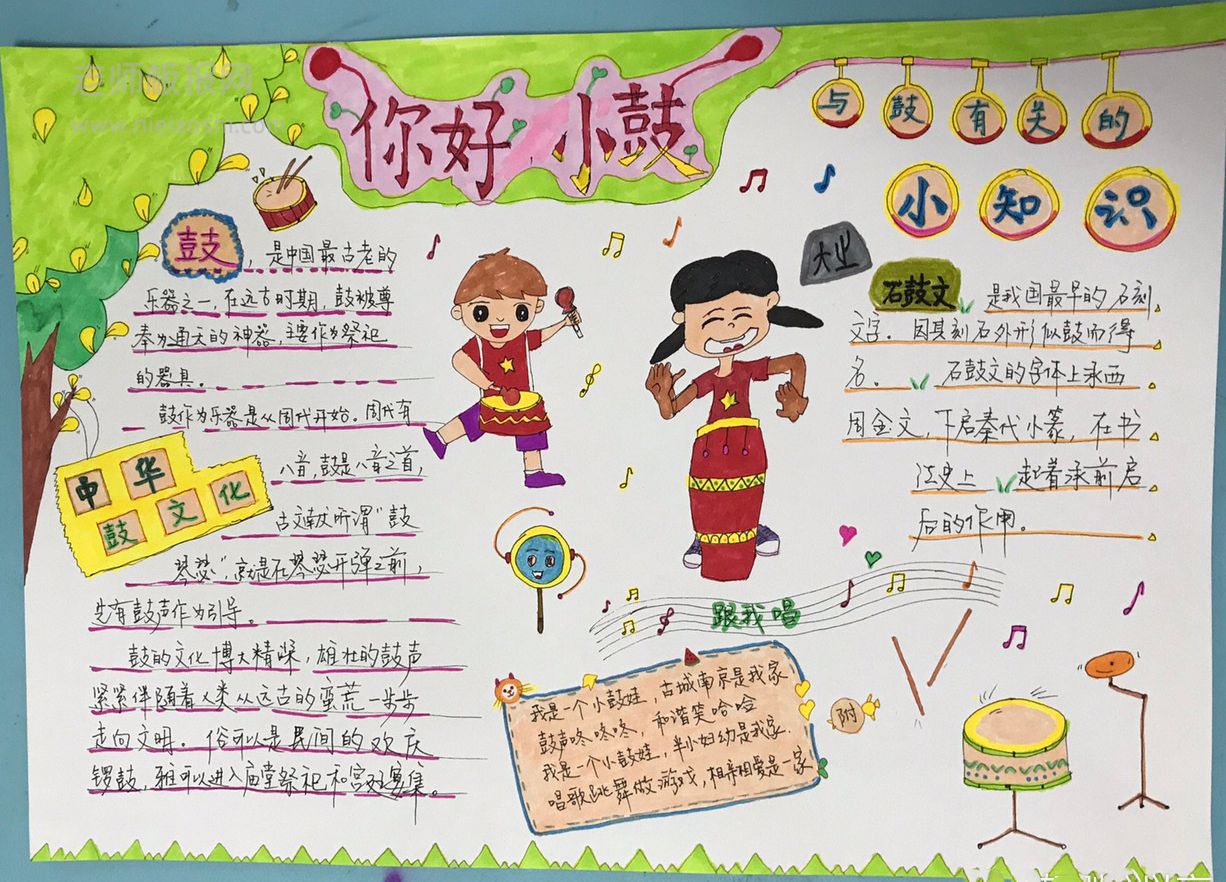 你好,小鼓
与鼓有关的
小知识
鼓,是中国最古老的
乐器之一,在远古时期,鼓被尊
奉为通天的神器,主要作为祭祀
的器具。
鼓作为乐器是从周代开始。周代有
八音,鼓是八音之首,
古文献所谓“鼓
琴瑟”,就是在琴瑟开弹之前,
先有鼓声作为引导。
鼓的文化博大精深,雄壮的鼓声
紧紧伴随着人类从远古的蛮荒一步步
走向文明。俗可以是民间的欢庆
锣鼓,雅可以进入庙堂祭祀和宫廷宴集。
中华
鼓文化
石鼓文 是我国最早的石刻
文字。因其刻石外形似鼓而得
名。 石鼓文的字体上承西
周金文,下启秦代小篆,在书
法史上 起着承前启
后的作用。
跟我唱
我是一个小鼓娃,古城南京是我家
鼓声咚咚咚,和谐笑哈哈
我是一个小鼓娃,半小妇幼是我家.
唱歌跳舞做游戏,相亲相爱是一家
附